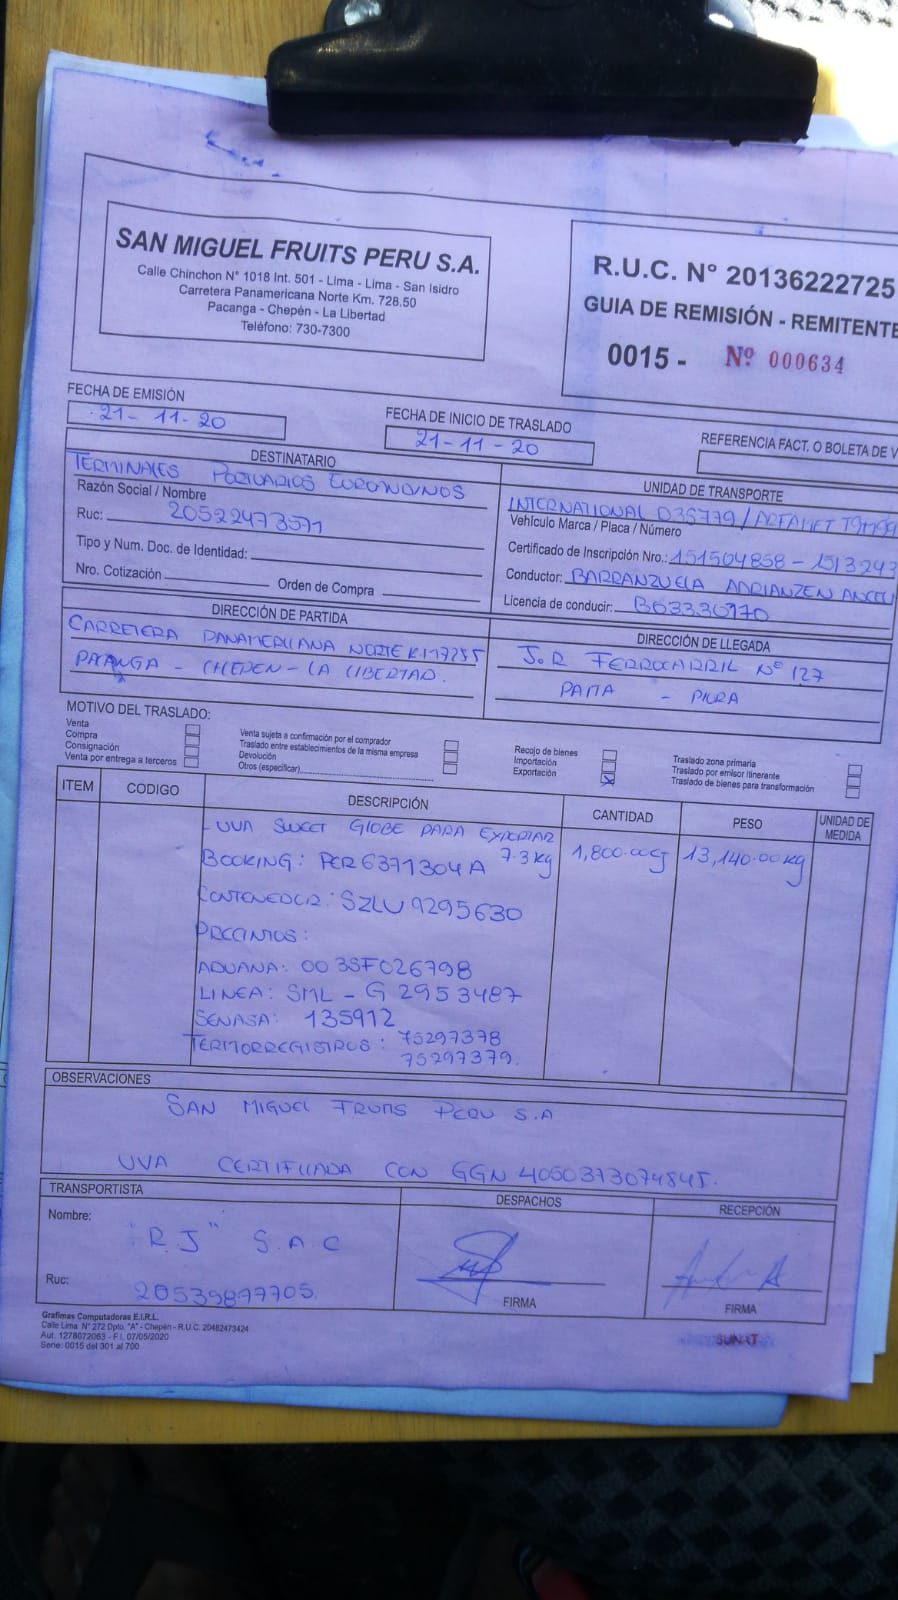 SAN MIGUEL FRUITS PERU S.A.
Calle Chinchon N° 1018 Int. 501 - Lima - Lima - San Isidro
Carretera Panamericana Norte Km. 728.50
Pacanga - Chepén - La Libertad
Teléfono: 730-7300
R.U.C. N° 20136222725
GUIA DE REMISIÓN - REMITENTE
0015 - Nº 000634
FECHA DE EMISIÓN
21-11-20
FECHA DE INICIO DE TRASLADO
21-11-20
REFERENCIA FACT. O BOLETA DE V
DESTINATARIO
TERMINALES PORTUARIOS EUROANDINOS
Razón Social / Nombre
Ruc: 20522473571
Tipo y Num. Doc. de Identidad:
Nro. Cotización
Orden de Compra
UNIDAD DE TRANSPORTE
INTERNATIONAL D3S779 /
Vehículo Marca / Placa / Número
Certificado de Inscripción Nro.: 151504858 - 1513243
Conductor: BARRANZUELA ADRIANZEN ANGEL
Licencia de conducir: B63330170
DIRECCIÓN DE PARTIDA
CARRETERA PANAMERICANA NORTE
PACANGA - CHEPEN - LA LIBERTAD.
DIRECCIÓN DE LLEGADA
J.R FERROCARRIL Nº 127
PAITA - PIURA
MOTIVO DEL TRASLADO:
Venta
Compra
Consignación
Venta por entrega a terceros
Venta sujeta a confirmación por el comprador
Traslado entre establecimientos de la misma empresa
Devolución
Otros (especificar)
Recojo de bienes
Importación
Exportación X
Traslado zona primaria
Traslado por emisor itinerante
Traslado de bienes para transformación
ITEM CODIGO DESCRIPCIÓN CANTIDAD PESO UNIDAD DE MEDIDA
- UVA SWEET GLOBE PARA EXPORTAR
7.3 Kg 1,800.00 13,140.00 Kg
BOOKING: PER6371304A
CONTENEDOR: SZLU 9295630
PRECINTOS:
ADUANA: 003SF026798
LINEA: SML - G 2953487
SENASA: 135912
TERMORREGISTROS: 75297378
75297379.
OBSERVACIONES
SAN MIGUEL FRUITS PERU S.A
UVA CERTIFICADA CON GGN 4050373074845.
TRANSPORTISTA
Nombre:
"RJ" S.A.C
Ruc: 20539897705
DESPACHOS
FIRMA
RECEPCIÓN
FIRMA
Grafimas Computadoras E.I.R.L.
Calle Lima N° 272 Dpto. "A" - Chepén - R.U.C. 20482473424
Aut. 1278072063 - F.I. 07/05/2020
Serie: 0015 del 301 al 700
SUNAT